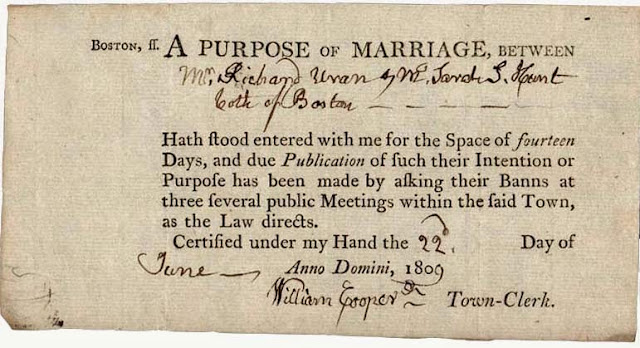 Boston, ſſ. A PURPOSE OF MARRIAGE, BETWEEN
Mr. Richard Uran & Ms. Sarah S. Hunt
both of Boston — — — —
Hath ſtood entered with me for the Space of fourteen
Days, and due Publication of ſuch their Intention or
Purpoſe has been made by aſking their Banns at
three ſeveral public Meetings within the ſaid Town,
as the Law directs.
Certified under my Hand the 22d. Day of
June — Anno Domini, 1809
William Cooper Town-Clerk.